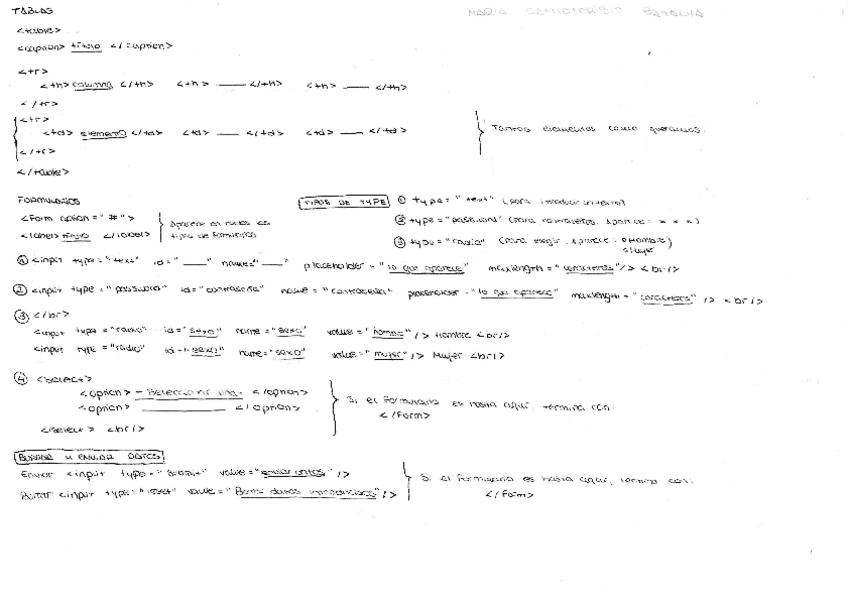 TABLAS
<table>
<caption> título </caption>
<tr>
<th> columna </th> <th> ___ </th> <th> ___ </th>
</tr>
<tr>
<td> elemento </td> <td> ___ </td> <td> ___ </td>
</tr>
Tantos elementos como queramos.
</table>
FORMULARIOS
<form action="#">
<label> título </label>
Aparece en todos los tipos de formularios
TIPOS DE TYPE
① type="text" (para introducir un texto)
② type="password" (para contraseñas. Aparece: * * *)
③ type="radio" (para elegir. Aparece: o Hombre
o Mujer)
① <input type="text" id="___" name="___" placeholder="lo que aparece" maxlength="caracteres"/> <br/>
② <input type="password" id="contraseña" name="contraseña" placeholder="lo que aparece" maxlength="caracteres" /> <br/>
③ </br>
<input type="radio" id="sexo" name="sexo" value="hombre"/> Hombre <br/>
<input type="radio" id="sexo" name="sexo" value="mujer"/> Mujer <br/>
④ <select>
<option> - Seleccionar una- </option>
<option> ___ </option>
</select> <br/>
Si el formulario es hasta aquí, termina con:
</form>
BORRAR Y ENVIAR DATOS
Enviar <input type="submit" value="enviar datos" />
Borrar <input type="reset" value="Borrar datos introducidos"/>
Si el formulario es hasta aquí, termina con:
</form>